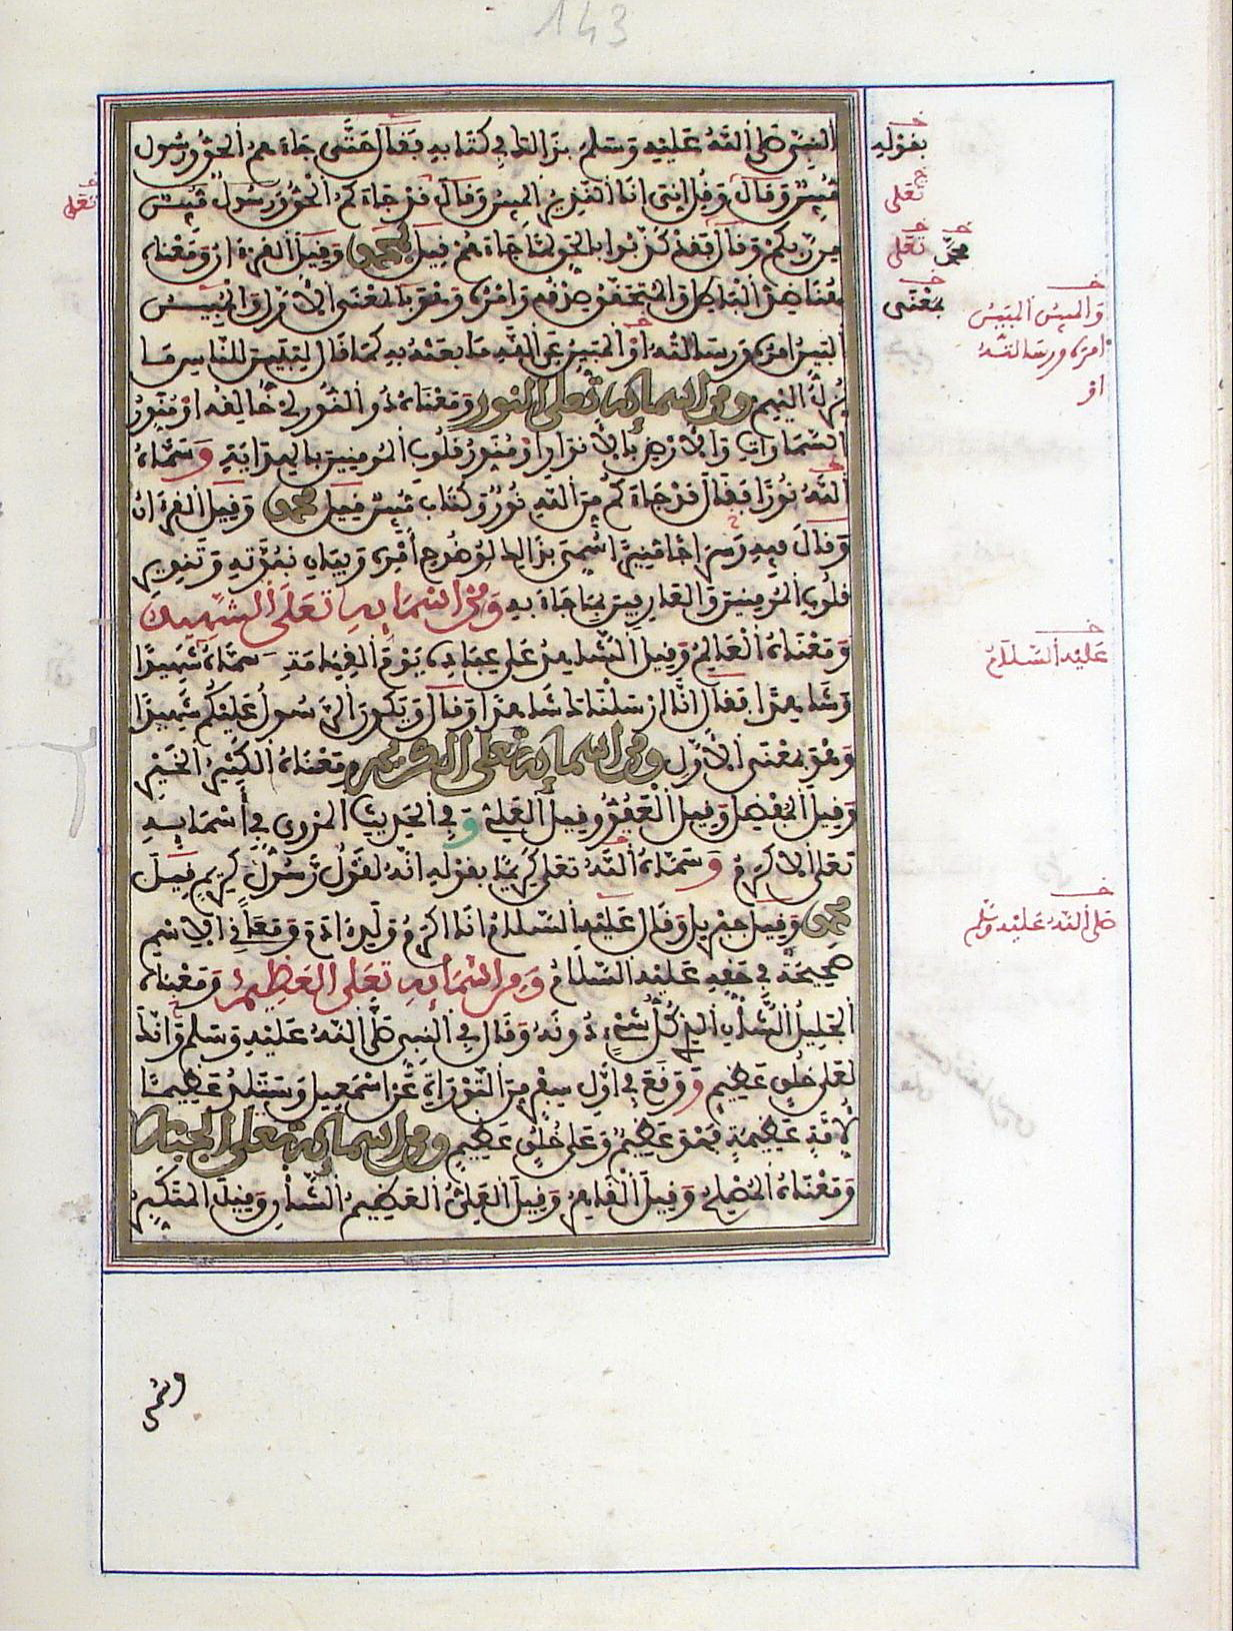 143
النبي صلى الله عليه وسلم بذالك في كتابه فقال حتى جاءهم الحق ورسول
مبين وقال وقل إني أنا النذير المبين وقال قد جاءكم الحق ورسول مبين
من ربكم وقال فقد كذبوا بالحق لما جاءهم قيل محمد وقيل القرءان ومعناه
هنا ضد الباطل والمتحقق صدقه وأمره وهو بالمعنى الأول والمبين
البين أمره ورسالته أو المبين عن الله ما بعثه به كما قال لتبين للناس ما
نزل إليهم ومن أسمائه تعلى النور ومعناه ذو النور لي خالقه أو منور
السماوات والأرض بالأنوار أو منور قلوب المومنين بالهداية وسماه
الله نورا فقال قد جاءكم من الله نور وكتاب مبين قيل محمد وقيل القرءان
وقال فيه وسراجا منيرا سمي بذالك لوضوح أمره وبيان نبوته وتنوير
قلوب المومنين والعارفين بما جاء به ومن أسمائه تعلى الشهيد
ومعناه العالم وقيل الشاهد على عباده يوم القيامة سماه شهيدا
وشاهدا فقال إنا أرسلناك شاهدا وقال ويكون الرسول عليكم شهيدا
وهو بمعنى الأول ومن أسمائه تعلى الكريم ومعناه الكثير الخير
وقيل المفضل وقيل العفو وقيل العلي وفي الحديث المروي في أسمائه
تعلى الأكرم وسماه الله تعلى كريما بقوله إنه لقول رسول كريم قيل
محمد وقيل جبريل وقال عليه السلام أنا أكرم ولد ءادم ومعاني الاسم
صحيحة في حقه عليه السلام ومن أسمائه تعلى العظيم ومعناه
الجليل الشأن الذي كل شيء دونه وقال في النبي صلى الله عليه وسلم وإنك
لعلى خلق عظيم ووقع في أول سفر من التوراة عن اسمعيل وستلد عظيما
لأمة عظيمة فهو عظيم وعلى خلق عظيم ومن أسمائه تعلى الجبار
ومعناه المصلح وقيل القاهر وقيل العلي العظيم الشأن وقيل المتكبر
بقوله
تعلى
تعلى
محمد تعلى
بمعنى
والمبين المبين
أمره ورسالته
أو
عليه السلام
صلى الله عليه وسلم